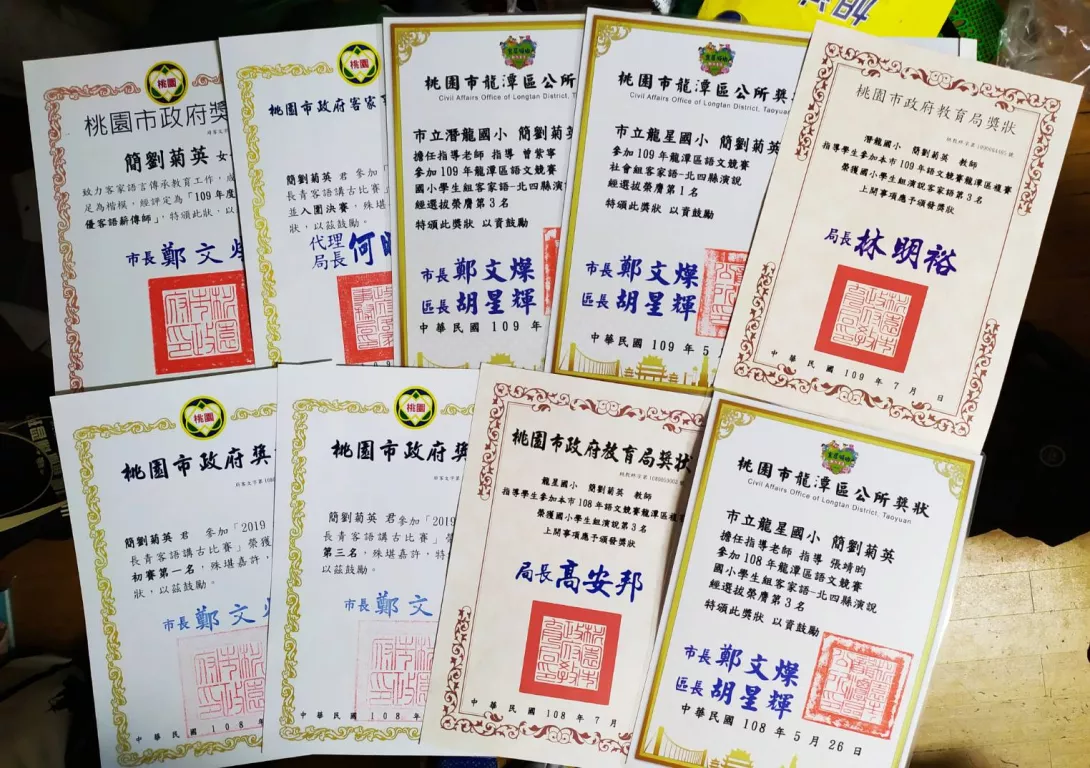 桃園
桃園市政府獎
簡劉菊英 女
致力客家語言傳承教育工作,
足為楷模,經評定為「109年度
優客語薪傳師」,特頒此狀,以
市長 鄭文燦
桃園
桃園市政府客家事
簡劉菊英 君 參加「
長青客語講古比賽」
並入圍決賽,殊堪
狀,以茲鼓勵。
代理
局長 何明
桃園市龍潭區公所
Civil Affairs Office of Longtan District, T
市立潛龍國小 簡劉菊英
擔任指導老師 指導 曾紫寧
參加109年龍潭區語文競賽
國小學生組客家語-北四縣演說
經選拔榮膺第3名
特頒此獎狀 以資鼓勵
市長 鄭文燦
區長 胡星輝
中華民國 109 年
桃園市龍潭區公所獎
Civil Affairs Office of Longtan District, Taoyuan
市立龍星國小 簡劉菊英
參加109年龍潭區語文競賽
社會組客家語-北四縣演說
經選拔榮膺第1名
特頒此獎狀 以資鼓勵
市長 鄭文燦
區長 胡星輝
中華民國 109 年 5
桃園市政府教育局獎狀
潛龍國小 簡劉菊英 教師
指導學生參加本市109年語文競賽龍潭區複賽
榮獲國小學生組演說客家語第3名
上開事項應予頒發獎狀
局長 林明裕
中華民國 109 年 7 月 日
桃園
桃園市政府獎
簡劉菊英 君 參加「2019
長青客語講古比賽」榮獲
初賽第一名,殊堪嘉許,
狀,以茲鼓勵。
市長 鄭文燦
中華民國 108 年
桃園
桃園市政府獎
簡劉菊英 君參加「2019
長青客語講古比賽」榮
第三名,殊堪嘉許,特
以茲鼓勵。
市長 鄭文
中華民國 108 年
桃園市政府教育局獎狀
龍星國小 簡劉菊英 教師
指導學生參加本市108年語文競賽龍潭區複賽
榮獲國小學生組演說第3名
上開事項應予頒發獎狀
局長 高安邦
中華民國 108 年 7 月
桃園市龍潭區公所獎狀
Civil Affairs Office of Longtan District, Taoyuan
市立龍星國小 簡劉菊英
擔任指導老師 指導 張靖昀
參加108年龍潭區語文競賽
國小學生組客家語-北四縣演說
經選拔榮膺第3名
特頒此獎狀 以資鼓勵
市長 鄭文燦
區長 胡星輝
中華民國 108 年 5 月 26 日